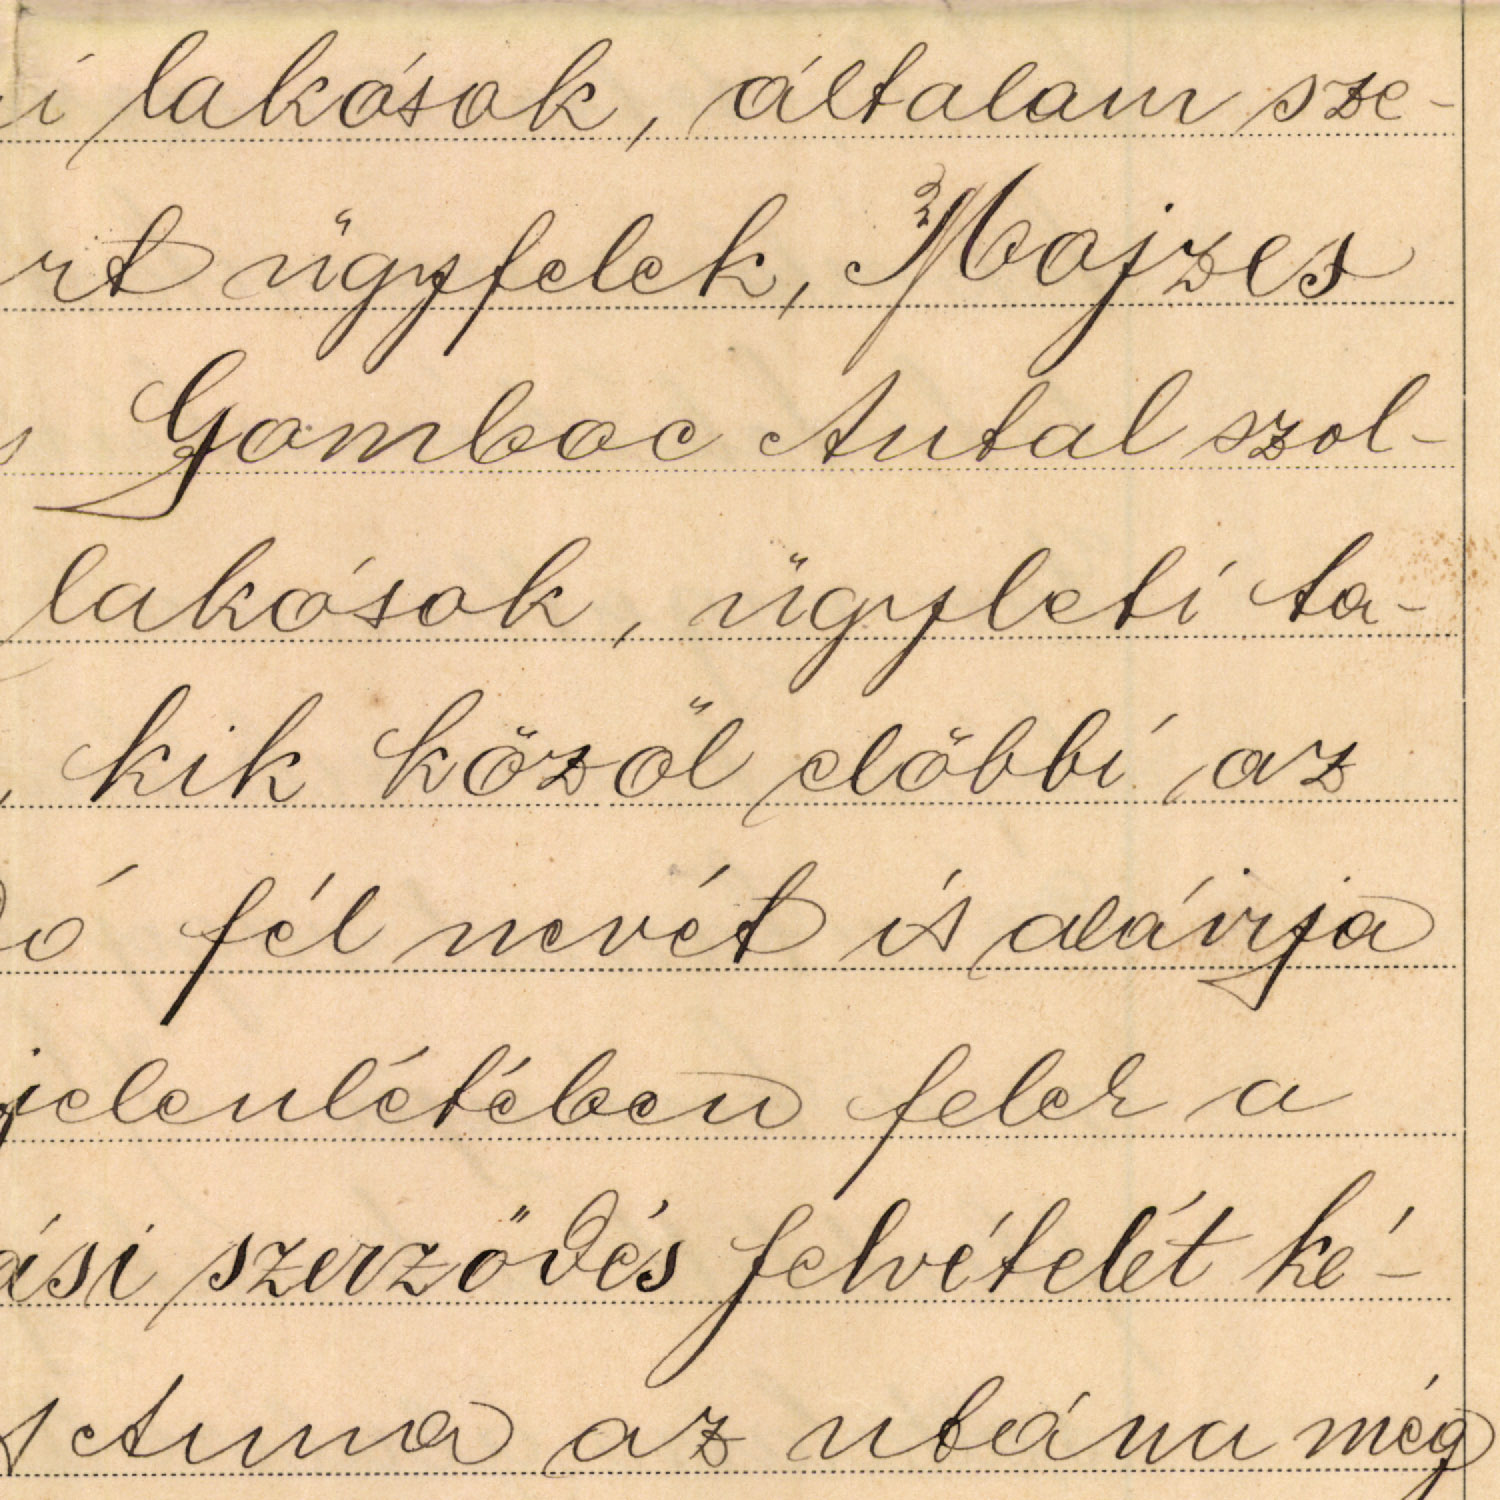 i lakósok, általam sze-
rt ügyfelek, Mojzes
s Gomboc Antal szol-
lakósok, ügyleti ta-
, kik közől előbbi az
dó fél nevét is aláirja
jelenlétében felek a
ási szerződés felvételét ké-
s Anna az utána még